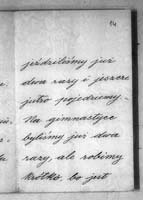 14
jeździliśmy już
dwa razy i jeszcze
jutro pojedziemy.
Na gimnastyce
byliśmy już dwa
razy, ale robimy
krótko, bo jest